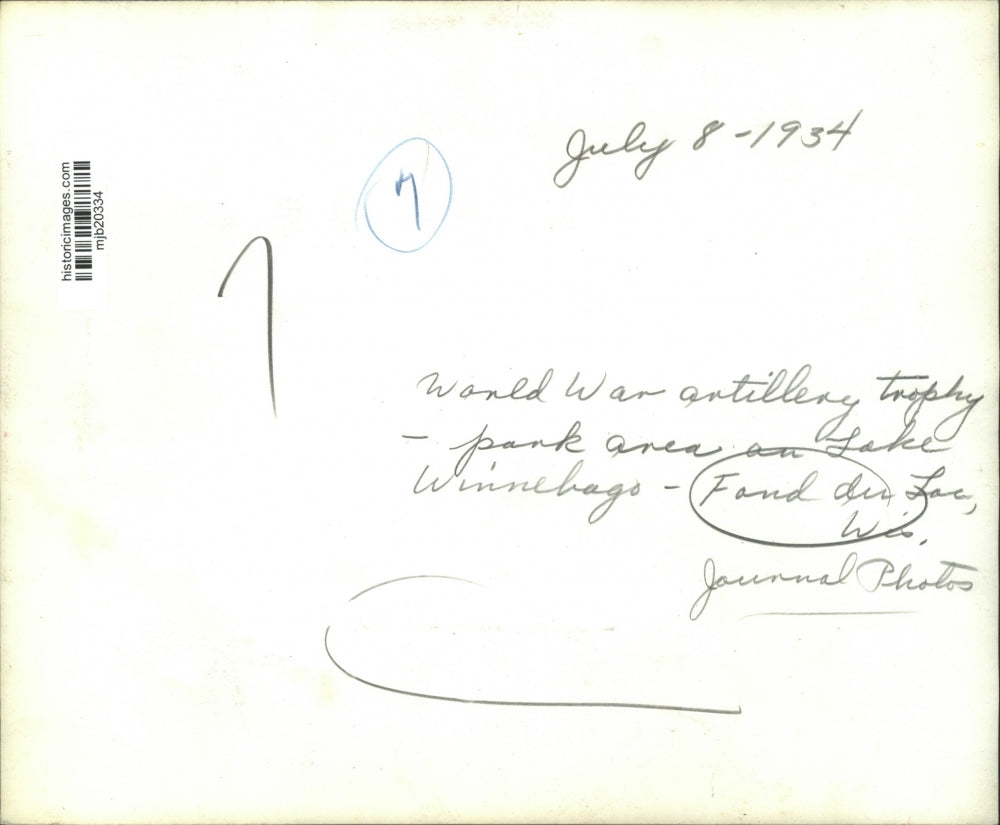 historicimages.com
mjb20334
July 8-1934
7
World War artillery trophy
- park area on Lake
Winnebago - Fond du Lac,
Wis.
Journal Photos